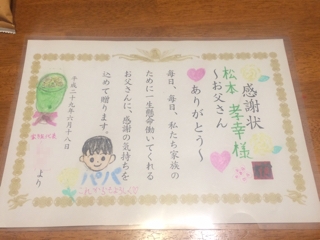 感謝状
松本 孝幸様
～お父さん
ありがとう～
毎日、毎日、私たち家族の
ために一生懸命働いてくれる
お父さんに、感謝の気持ちを
込めて贈ります。
平成二十九年六月十八日
より
パパ